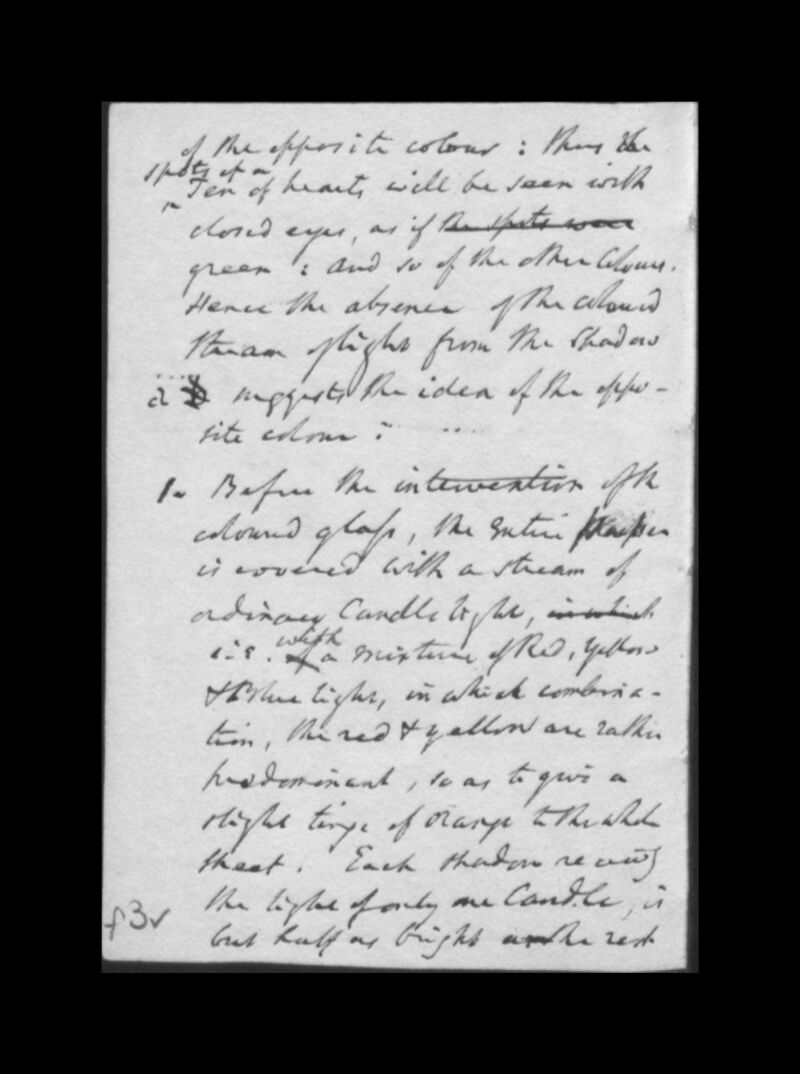 of the opposite colour : thus the
spots of a
Ten of hearts will be seen with
closed eyes, as if the spots were
green : and so of the other Colours.
Hence the absence of the coloured
stream of light from the shadow
a b suggests the idea of the oppo-
site colour :
1. Before the intervention of the
coloured glass, the entire paper
is covered with a stream of
ordinary Candle light, in which
i.e. with of a mixture of Red, Yellow
& Blue light, in which combina-
tion, the red & yellow are rather
predominant, so as to give a
slight tinge of orange to the whole
sheet. Each shadow receiving
the light of only one Candle, is
but half as bright as the rest
f3v